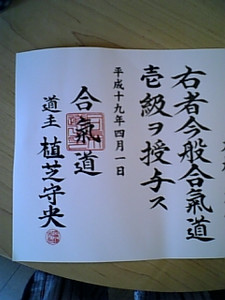 右者今般合氣道
壱級ヲ授与ス
平成十九年四月一日
合氣道
道主 植芝守央